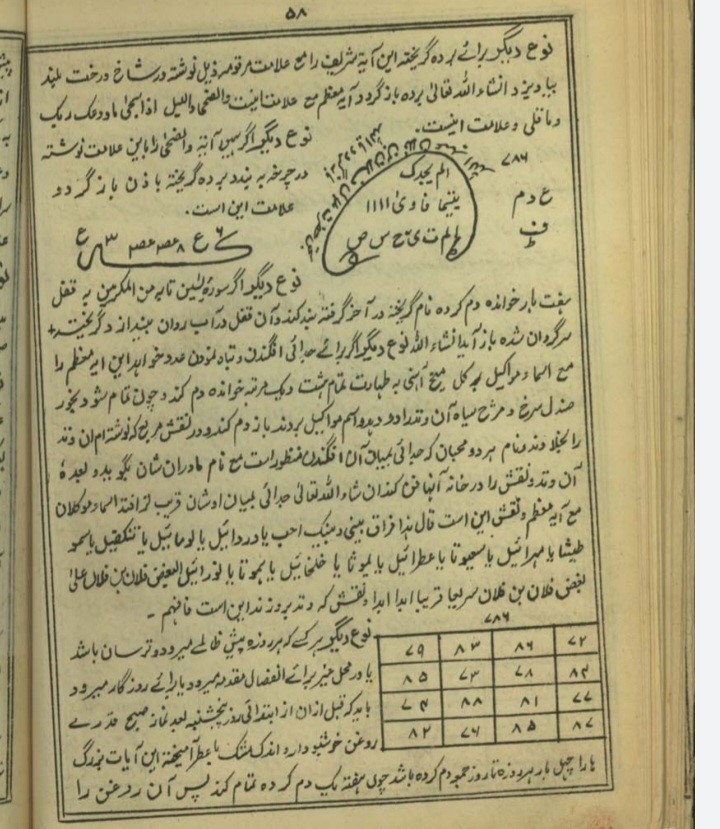 ۵۸
نوع دیگر برائے بردہ گریختہ این آیۃ شریف را مع علامت مرقومہ ذیل نوشتہ در شاخ درخت بلند
بیاویزد انشاء اللہ تعالیٰ بردہ باز گردد آیہ معظم مع علامت اینست والضحیٰ واللیل اذا سجیٰ ما ودعک ربک
وما قلی و علامت اینست۔
نوع دیگر اگر ہمین آیۃ والضحیٰ را باین علامت نوشتہ
در چرخہ بہ بندد بردہ گریختہ باذن باز گردد و
علامت این است۔
۷۸۶
الم یجدک
یتیما فاوی ۱۱۱۱
ع د م
نوع دیگر اگر سورہ یٰسین تا بہ من المکرمین بہ قفل
ہفت بار خواندہ دم کردہ نام گریختہ در آخر گرفتہ بند کند و آن قفل در آب روان بیندازد گریختہ
سرگردان شدہ باز آید انشاء اللہ نوع دیگر اگر برائے جدائی افگندن و تباہ نمودن عدد خواہد این آیہ معظم را
مع اسماء مواکیل بر کل میخ آہنی بہ طہارت تمام ہشت و یک مرتبہ خواندہ دم کند و چون تمام شود بخور
صندل سرخ و مرچ سیاہ آن وتد را دہد و اسم مواکیل بازدم کند و در نقش مربع کہ نوشتہ ام آن وتد
را نام ہر دو محبان کہ جدائی بمیان آن افگندن منظور است مع نام مادران شان بگوید و بعدہ
آن وتد و نقش را در خانہ آنہا دفن کند ان شاء اللہ تعالیٰ جدائی بمیان اوشان قریب تر افتد اسماء موکلان
مع آیہ معظم و نقش این است قال ہذا فراق بینی و بینک احب یا دردائیل یا لومائیل یا تنکفیل
طیشا یا مہرائیل یا عطرائیل یا یا یا لوزائیل البغض فلان بن فلان علیٰ
بغض فلان بن فلان سریعا قریبا ابدا ابدا و نقش کہ وتد بروزند این است فافہم۔
۷۸۶
۷۹ ۸۳ ۸۶ ۷۲
۸۵ ۷۳ ۷۸ ۸۴
۷۴ ۸۸ ۸۱ ۷۷
۸۲ ۷۶ ۸۵ ۸۷
نوع دیگر ہر کسے کہ ہر روزہ پیش ظالمے میرود و ترسان باشد
یا در محل غیر برائے انفصال مقدمہ میرود یا برائے روزگار میرود
باید کہ قبل ازان از ابتدائی روز پنجشنبہ بعد نماز صبح قدرے
روغن خوشبو دار و اندک مشک یا عطر آمیختہ این آیات بزرگ
را چہل بار ہر روزہ تا روز جمعہ دم کردہ باشد چون ہفتہ یک دم کردہ تمام کند پس آن روغن را